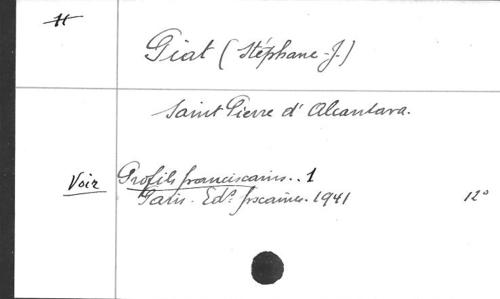 H
Piat (Stéphane-J.)
Saint Pierre d'Alcantara.
Voir Profils franciscains.. 1
Paris. Edᵒ fscaines. 1941 12°